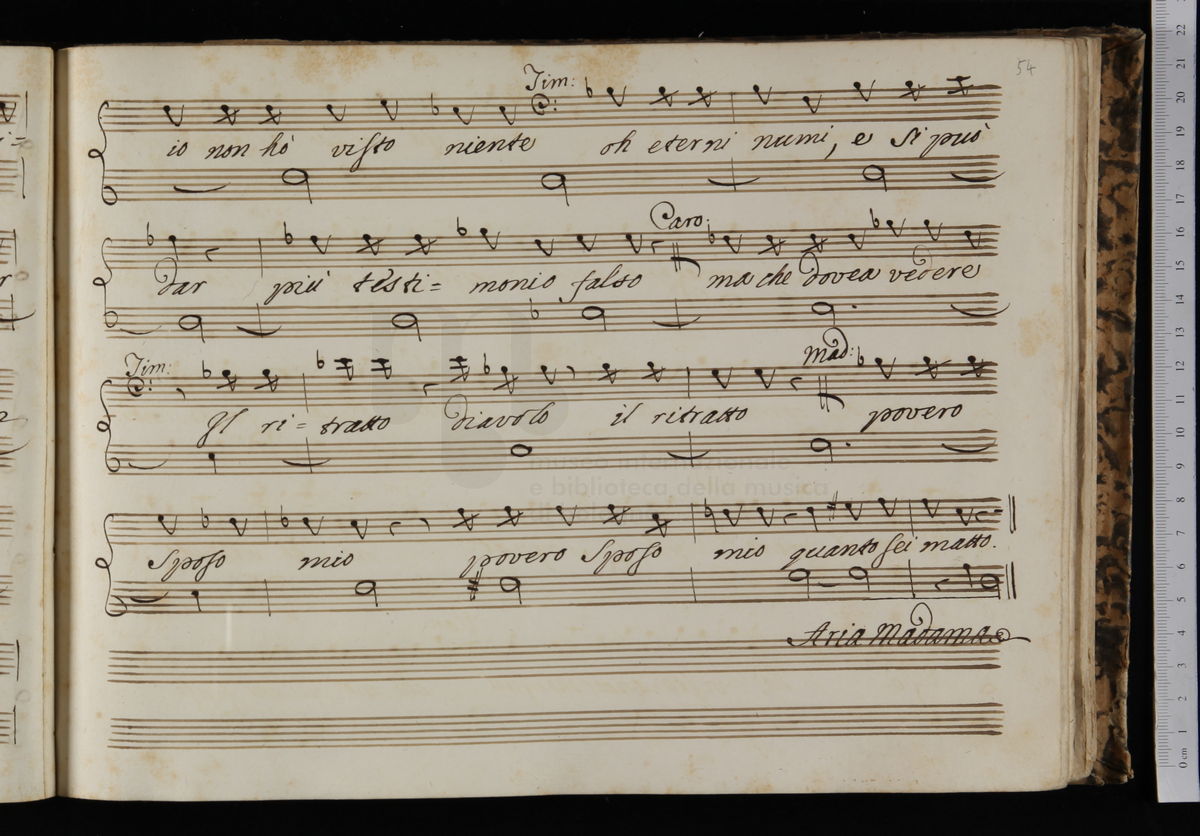 54
Tim:
io non hò visto niente oh eterni numi, e si può
Caro:
dar più testi= monio falso ma che dovea vedere
Tim: Mad:
Il ri= tratto diavolo il ritratto povero
Sposo mio povero Sposo mio quanto sei matto.
Aria Madama
e biblioteca della musica
0 cm 1 2 3 4 5 6 7 8 9 10 11 12 13 14 15 16 17 18 19 20 21 22